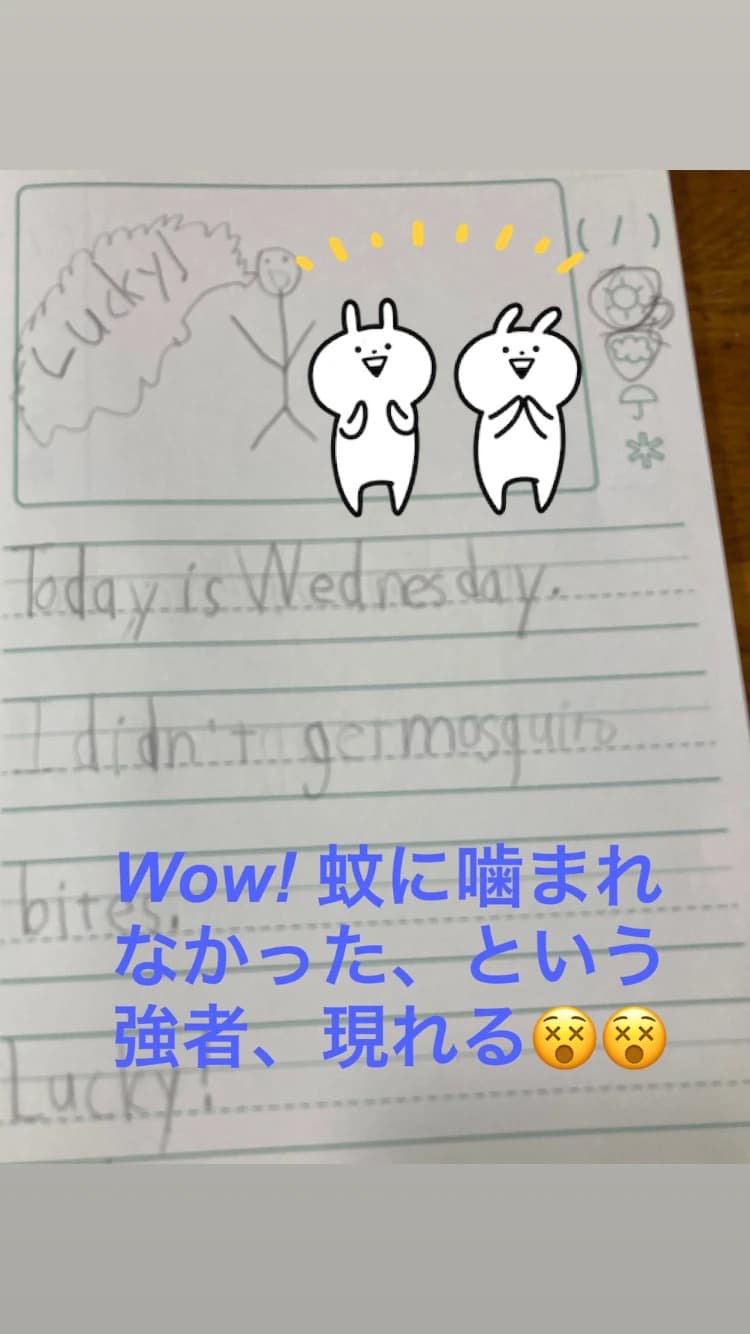 Lucky!
( / )
Today is Wednesday.
I didn't get mosquito
bites.
Wow! 蚊に噛まれ
なかった、という
強者、現れる😵😵
Lucky!